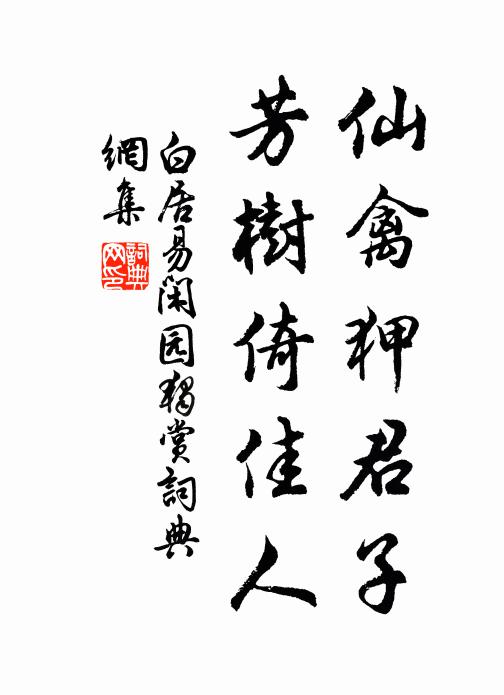 仙禽狎君子
芳樹倚佳人
白居易閑园獨賞詞典
網集
詞典
网印